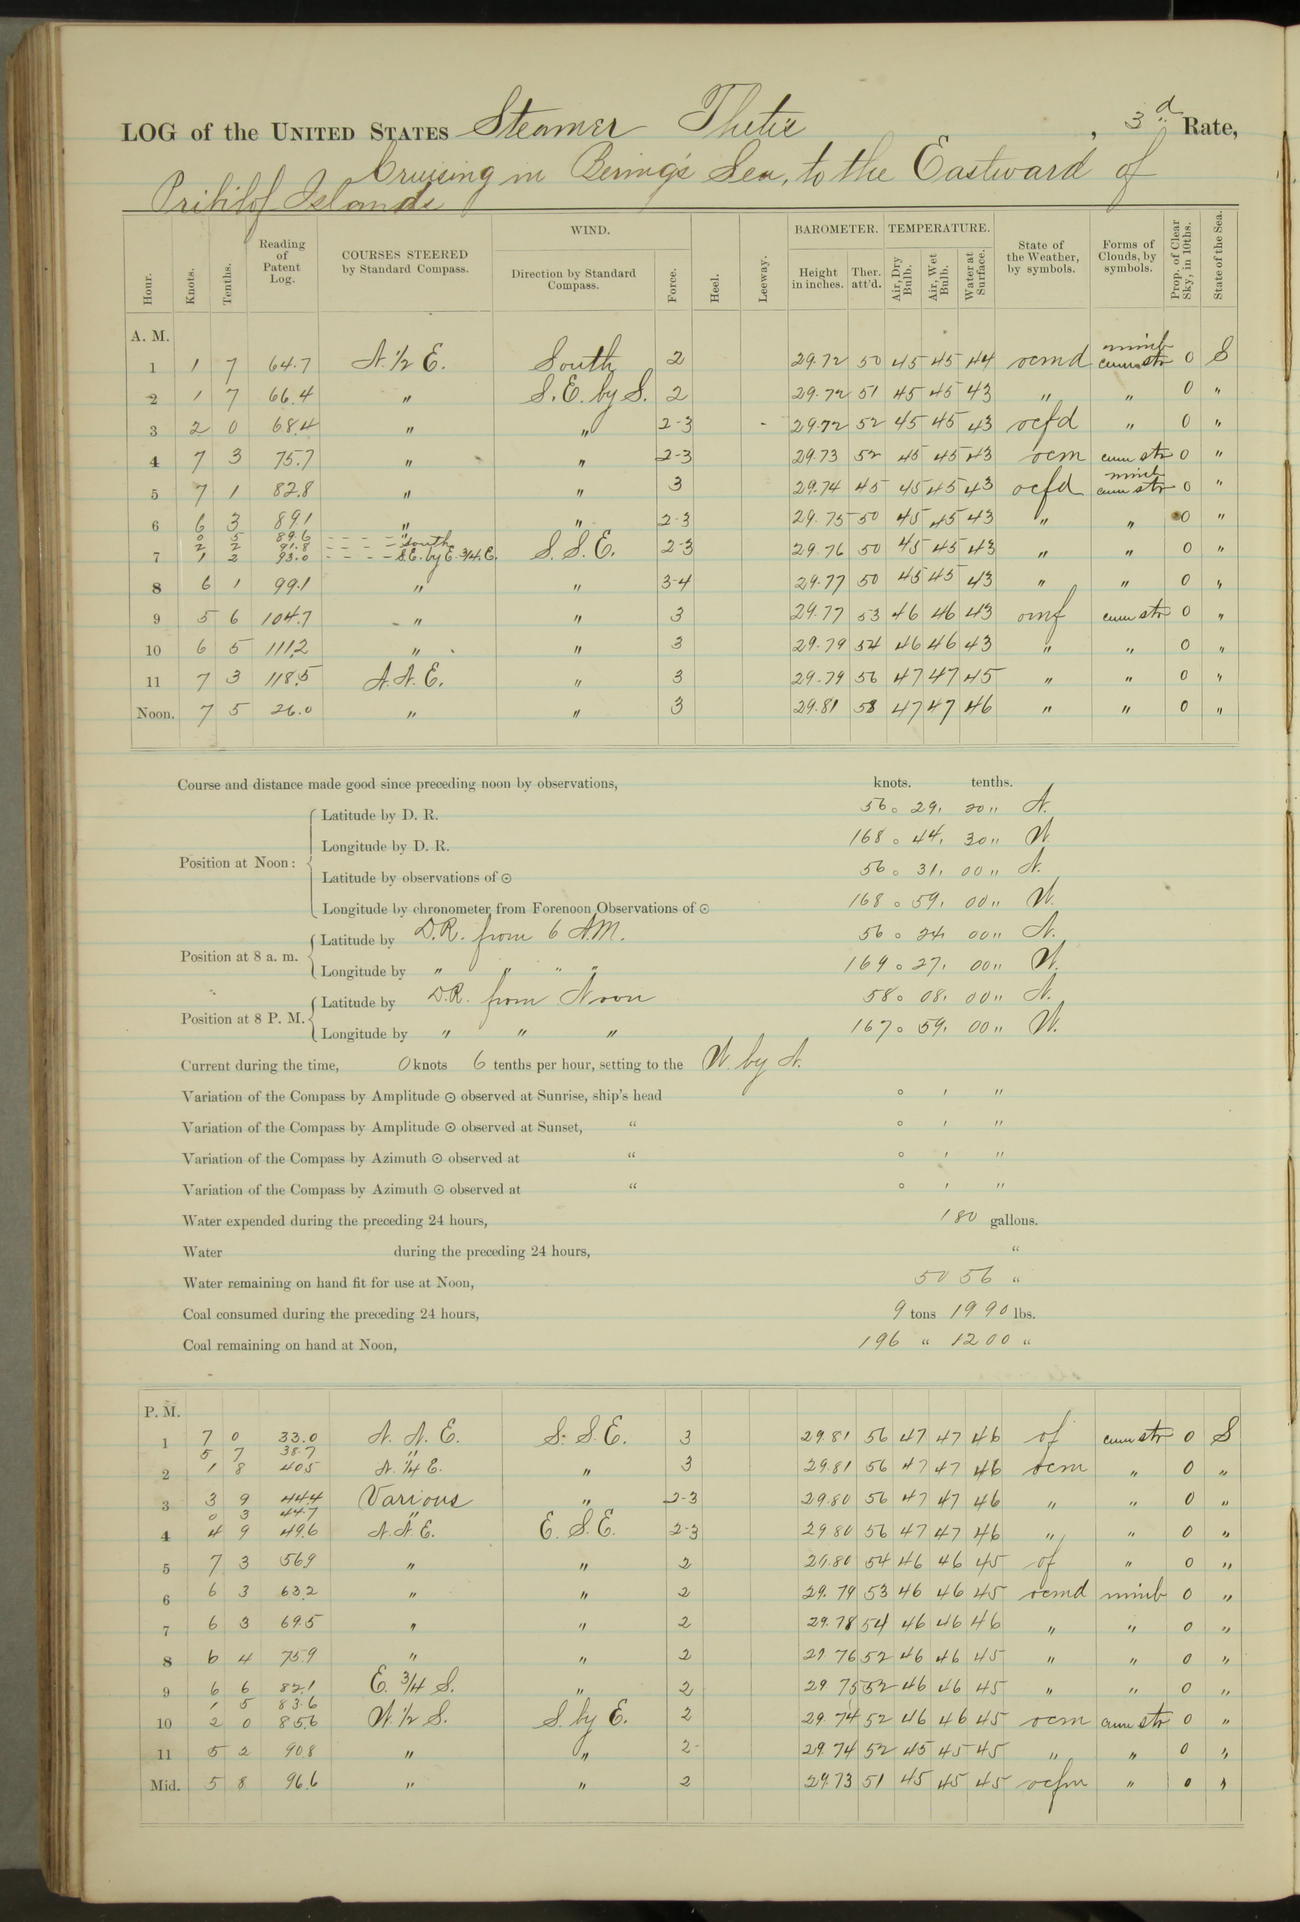 LOG of the UNITED STATES Steamer Thetis , 3d Rate,
Cruising in Bering's Sea, to the Eastward of
Pribilof Islands
Hour. Knots. Tenths. Reading of Patent Log. COURSES STEERED by Standard Compass. WIND. Direction by Standard Compass. Force. Heel. Leeway. BAROMETER. Height in inches. Ther. att'd. TEMPERATURE. Air, Dry Bulb. Air, Wet Bulb. Water at Surface. State of the Weather, by symbols. Forms of Clouds, by symbols. Prop. of Clear Sky, in 10ths. State of the Sea.
A. M.
1 1 7 64.7 N. 1/2 E. South 2 29.72 50 45 45 44 ocmd nimb cum str 0 S
2 1 7 66.4 " S.E. by S. 2 29.72 51 45 45 43 " " 0 "
3 2 0 68.4 " " 2-3 29.72 52 45 45 43 ocfd " 0 "
4 7 3 75.7 " " 2-3 29.73 52 45 45 43 ocm cum str 0 "
5 7 1 82.8 " " 3 29.74 45 45 45 43 ocfd nimb cum str 0 "
6 6 3 89.1 " " 2-3 29.75 50 45 45 43 " " 0 "
0 5 89.6 - - - - "
2 2 91.8 - - - - South
7 1 2 93.0 - - - - S.E. by E. 3/4 E. S.S.E. 2-3 29.76 50 45 45 43 " " 0 "
8 6 1 99.1 " " 3-4 29.77 50 45 45 43 " " 0 "
9 5 6 104.7 " " 3 29.77 53 46 46 43 omf cum str 0 "
10 6 5 111.2 " " 3 29.79 54 46 46 43 " " 0 "
11 7 3 118.5 N.N.E. " 3 29.79 56 47 47 45 " " 0 "
Noon. 7 5 26.0 " " 3 29.81 58 47 47 46 " " 0 "
Course and distance made good since preceding noon by observations, knots. tenths.
Position at Noon: Latitude by D. R. 56° 29' 20" N.
Longitude by D. R. 168° 44' 30" W
Latitude by observations of ☉ 56° 31' 00" N.
Longitude by chronometer from Forenoon Observations of ☉ 168° 59' 00" W.
Position at 8 a. m. Latitude by D.R. from 6 A.M. 56° 24' 00" N.
Longitude by " " " " 169° 27' 00" W.
Position at 8 P. M. Latitude by D.R. from Noon 58° 08' 00" N.
Longitude by " " " 167° 59' 00" W.
Current during the time, 0 knots 6 tenths per hour, setting to the W. by N.
Variation of the Compass by Amplitude ☉ observed at Sunrise, ship's head ° ' "
Variation of the Compass by Amplitude ☉ observed at Sunset, " ° ' "
Variation of the Compass by Azimuth ☉ observed at " ° ' "
Variation of the Compass by Azimuth ☉ observed at " ° ' "
Water expended during the preceding 24 hours, 180 gallons.
Water during the preceding 24 hours, "
Water remaining on hand fit for use at Noon, 5056 "
Coal consumed during the preceding 24 hours, 9 tons 1990 lbs.
Coal remaining on hand at Noon, 196 " 1200 "
P. M.
1 7 0 33.0 N. N. E. S. S. E. 3 29.81 56 47 47 46 of cum str 0 S
5 7 38.7 "
2 1 8 40.5 N. 1/4 E. " 3 29.81 56 47 47 46 ocm " 0 "
3 3 9 44.4 Various " 2-3 29.80 56 47 47 46 " " 0 "
0 3 44.7 "
4 4 9 49.6 N.N.E. E. S.E. 2-3 29.80 56 47 47 46 " " 0 "
5 7 3 56.9 " " 2 29.80 54 46 46 45 of " 0 "
6 6 3 63.2 " " 2 29.79 53 46 46 45 ocmd nimb 0 "
7 6 3 69.5 " " 2 29.78 54 46 46 46 " " 0 "
8 6 4 75.9 " " 2 29.76 52 46 46 45 " " 0 "
9 6 6 82.1 E. 3/4 S. " 2 29.75 52 46 46 45 " " 0 "
1 5 83.6
10 2 0 85.6 W. 1/2 S. S. by E. 2 29.74 52 46 46 45 ocm cum str 0 "
11 5 2 90.8 " " 2 29.74 52 45 45 45 " " 0 "
Mid. 5 8 96.6 " " 2 29.73 51 45 45 45 ocfm " 0 "